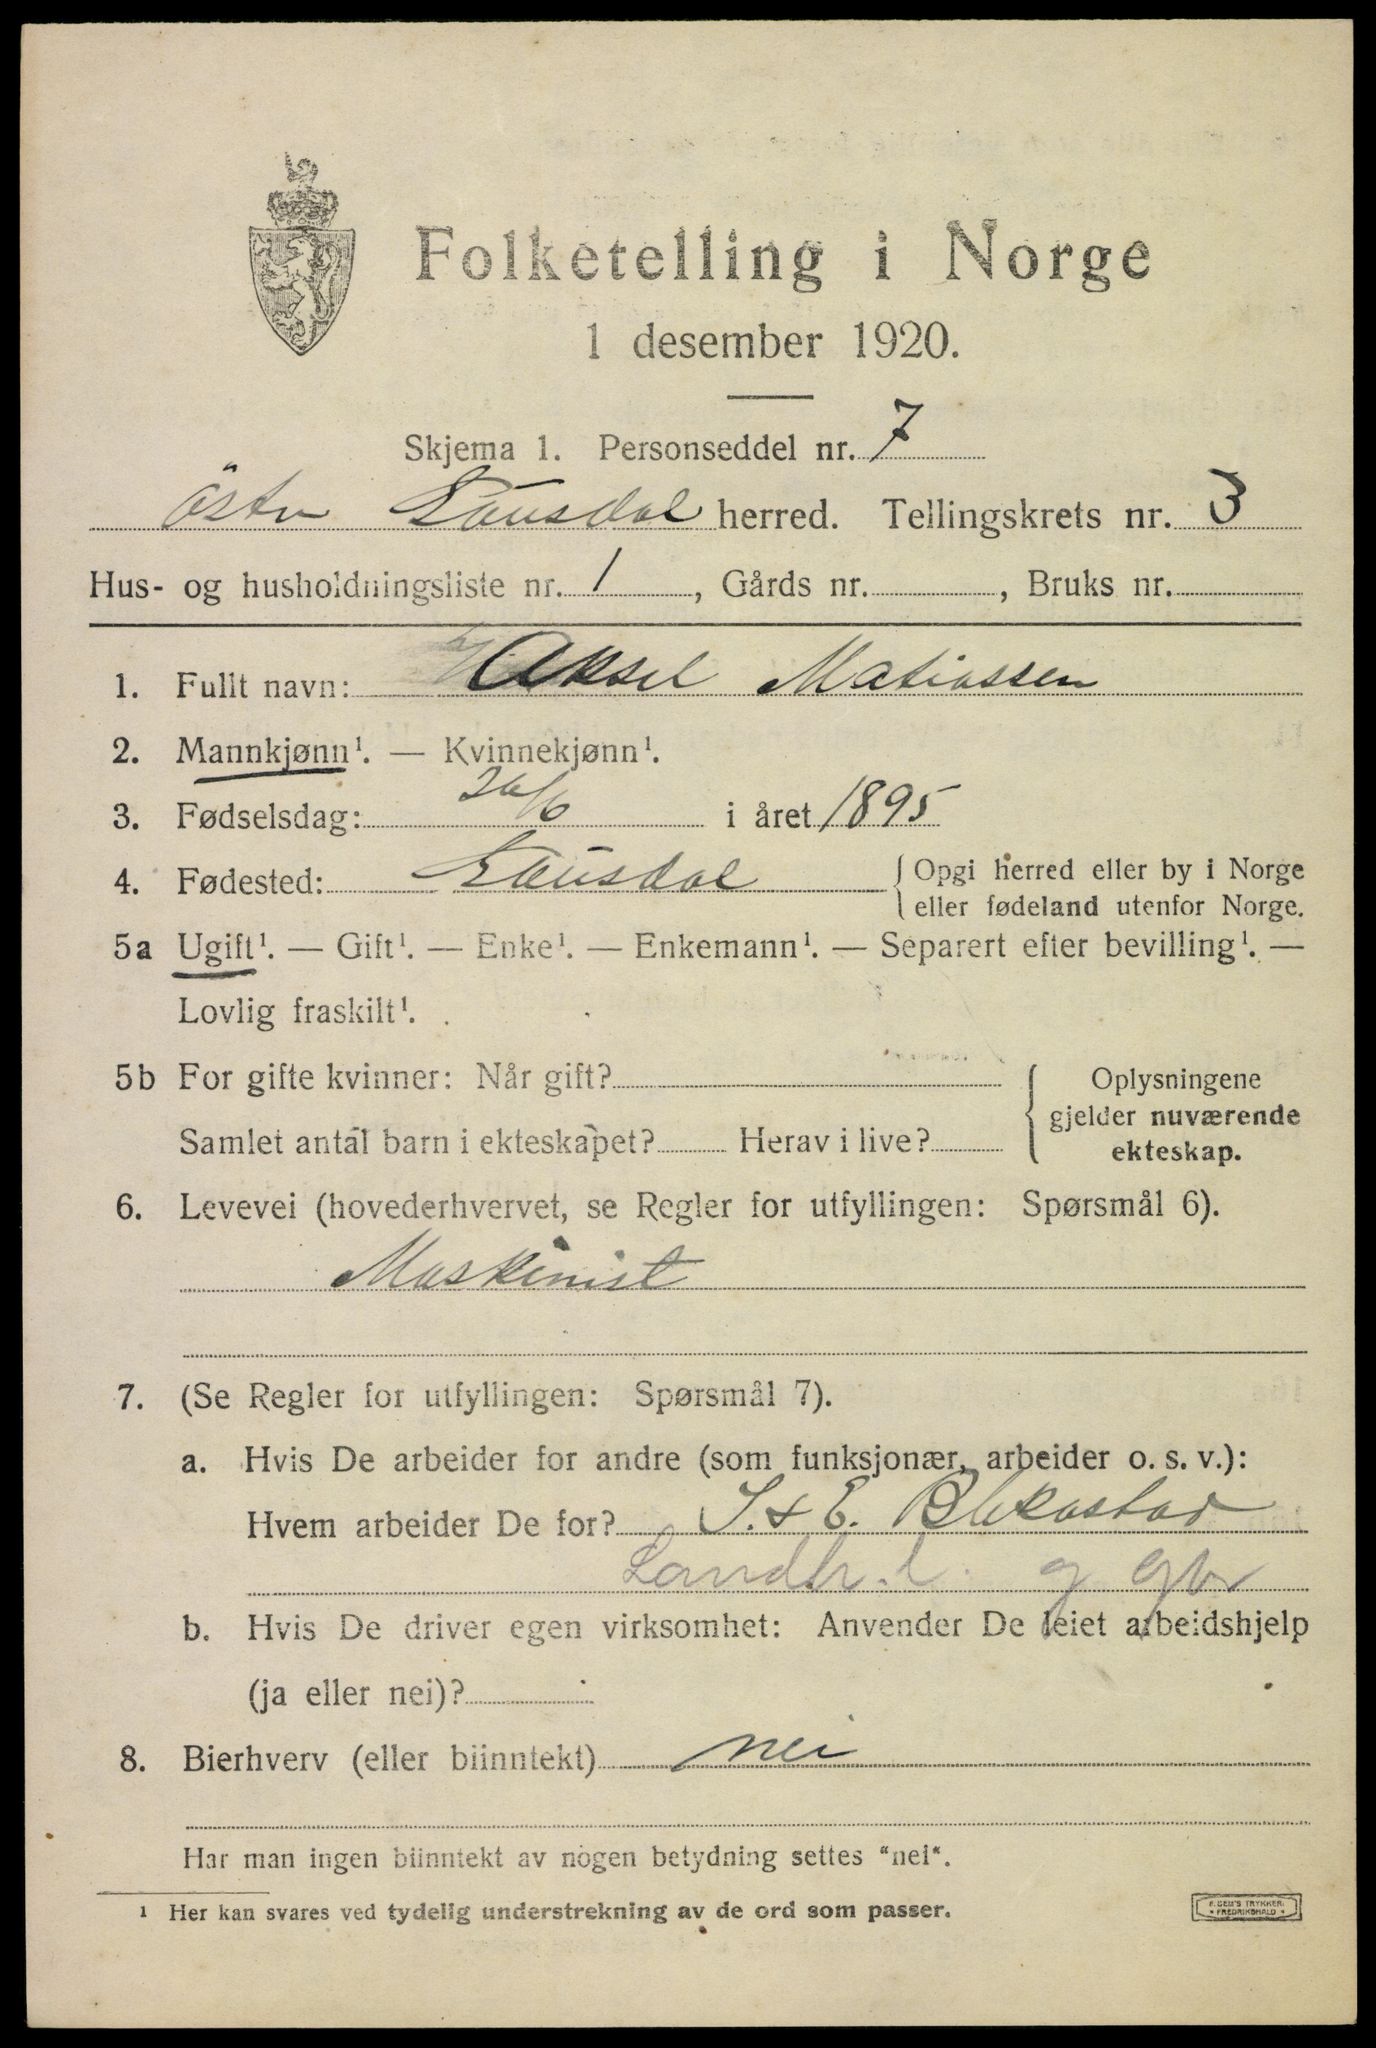 Folketelling i Norge
1 desember 1920.
Skjema 1. Personseddel nr. 7
Östre Gausdal herred. Tellingskrets nr. 3
Hus- og husholdningsliste nr. 1, Gårds nr. , Bruks nr.
1. Fullt navn: Aksel Matiassen
2. Mannkjønn¹. — Kvinnekjønn¹.
3. Fødselsdag: 26/6 i året 1895
4. Fødested: Gausdal { Opgi herred eller by i Norge
eller fødeland utenfor Norge.
5a Ugift¹. — Gift¹. — Enke¹. — Enkemann¹. — Separert efter bevilling¹. —
Lovlig fraskilt¹.
5b For gifte kvinner: Når gift? { Oplysningene
gjelder nuværende
Samlet antal barn i ekteskapet? Herav i live?
ekteskap.
6. Levevei (hovederhvervet, se Regler for utfyllingen: Spørsmål 6).
Maskinist
7. (Se Regler for utfyllingen: Spørsmål 7).
a. Hvis De arbeider for andre (som funksjonær, arbeider o. s. v.):
Hvem arbeider De for? S. & E. Blekastad
Landh.l.
b. Hvis De driver egen virksomhet: Anvender De leiet arbeidshjelp
(ja eller nei)?
8. Bierhverv (eller biinntekt) nei
Har man ingen biinntekt av nogen betydning settes "nei".
¹ Her kan svares ved tydelig understrekning av de ord som passer.
TRYKKERI
FREDRIKSHALD